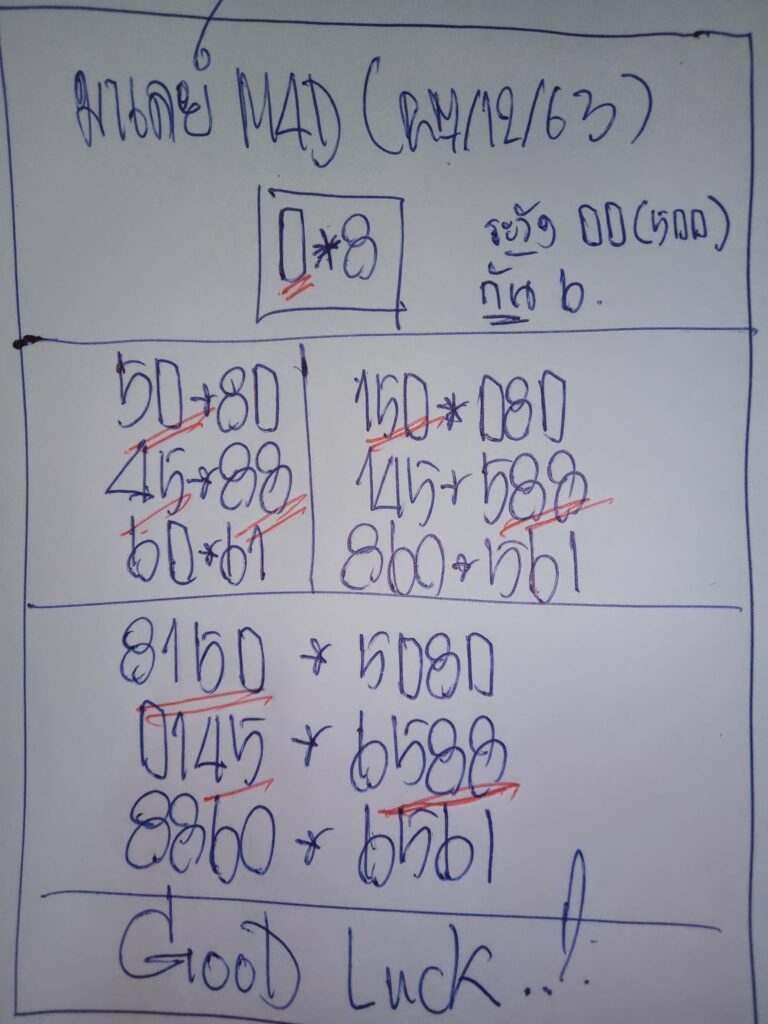 มาเลย์ M4D (27/12/63)
0*8
ระวัง 00(500)
กัน 6.
50*80
45*88
60*61
150*080
145*588
860*561
8150 * 5080
0145 * 6588
8860 * 6561
GooD Luck..!